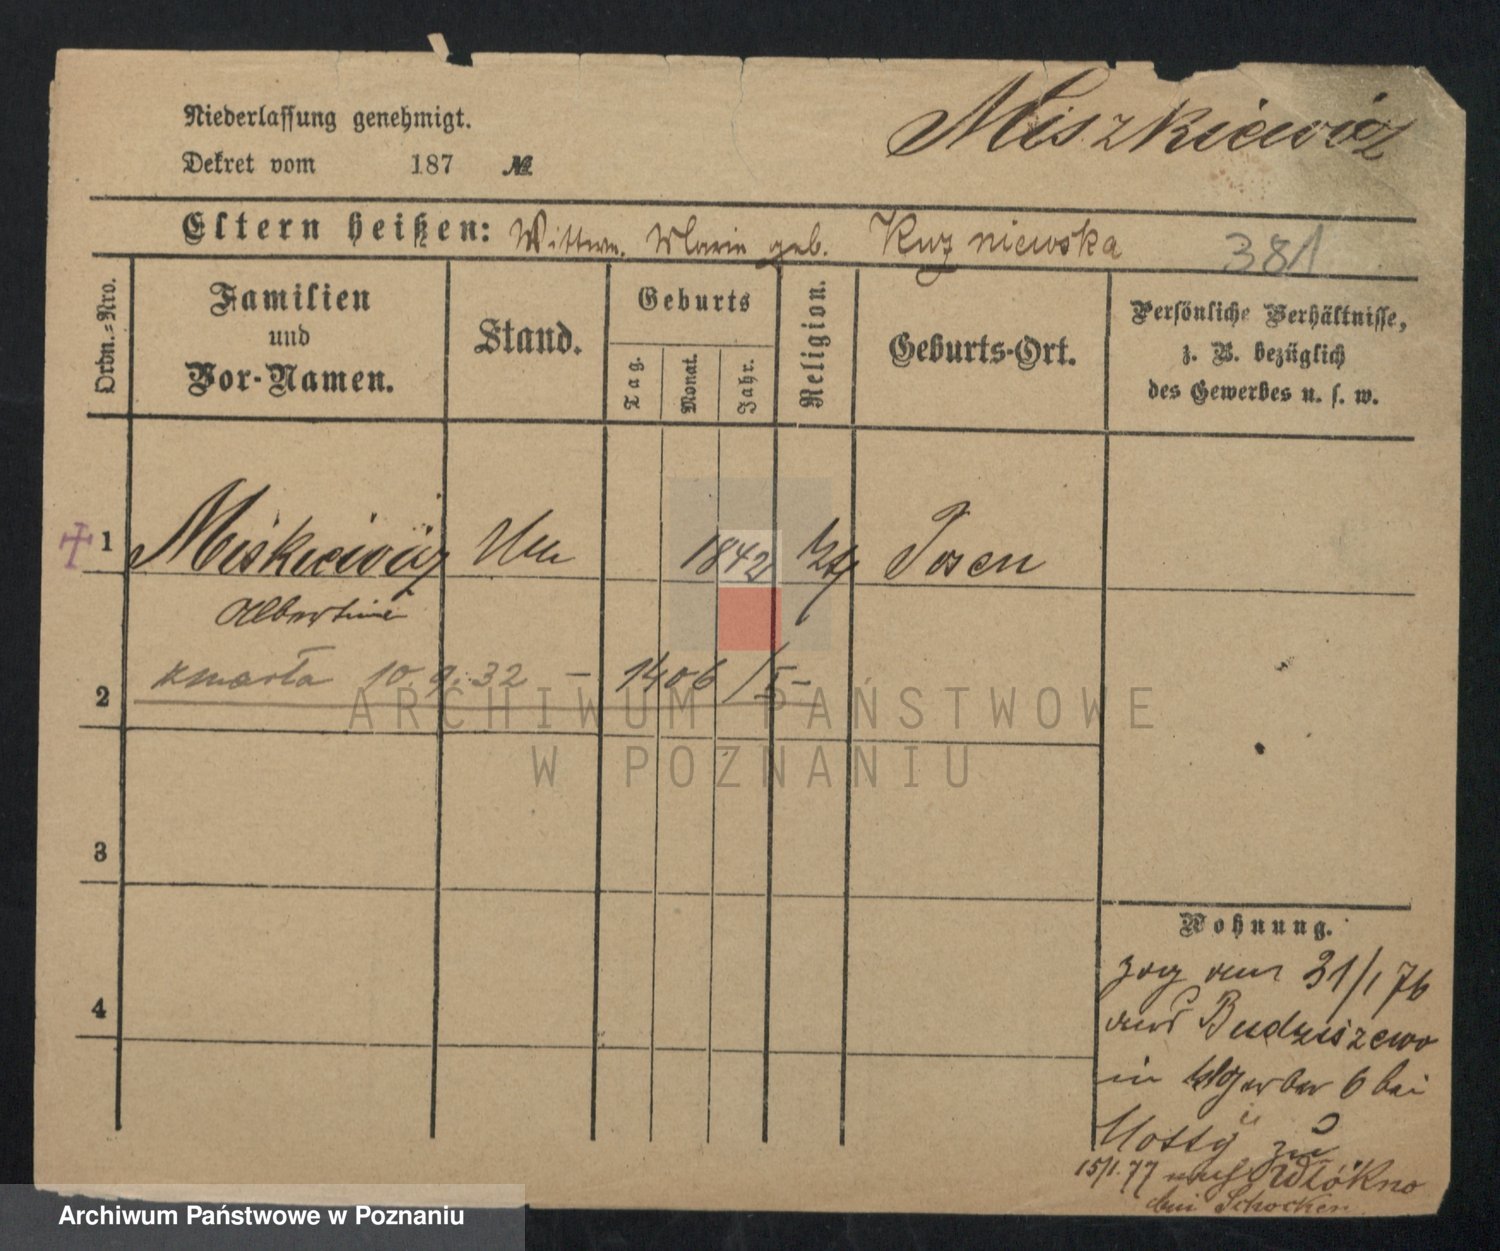 Niederlassung genehmigt.
Miszkiewicz
Dekret vom 187 №
Eltern heißen: Wittwe. Marie geb. Kuzniewska
381
Ordn.=Nro.
Familien
und
Vor-Namen.
Stand.
Geburts
Tag.
Monat.
Jahr.
Religion.
Geburts-Ort.
Persönliche Verhältnisse,
z. B. bezüglich
des Gewerbes u. s. w.
1 Miskiewicz 1842 Posen
Albertine
zmarła 10.9.32 – 1406 /5-
2
3
4
Wohnung.
zog am 31/1 76
aus Budziszewo
in Wgerber 6 bei
Motty zu
15/1.77 nach Włókno
bei Schocken.
ARCHIWUM PAŃSTWOWE
W POZNANIU
Archiwum Państwowe w Poznaniu